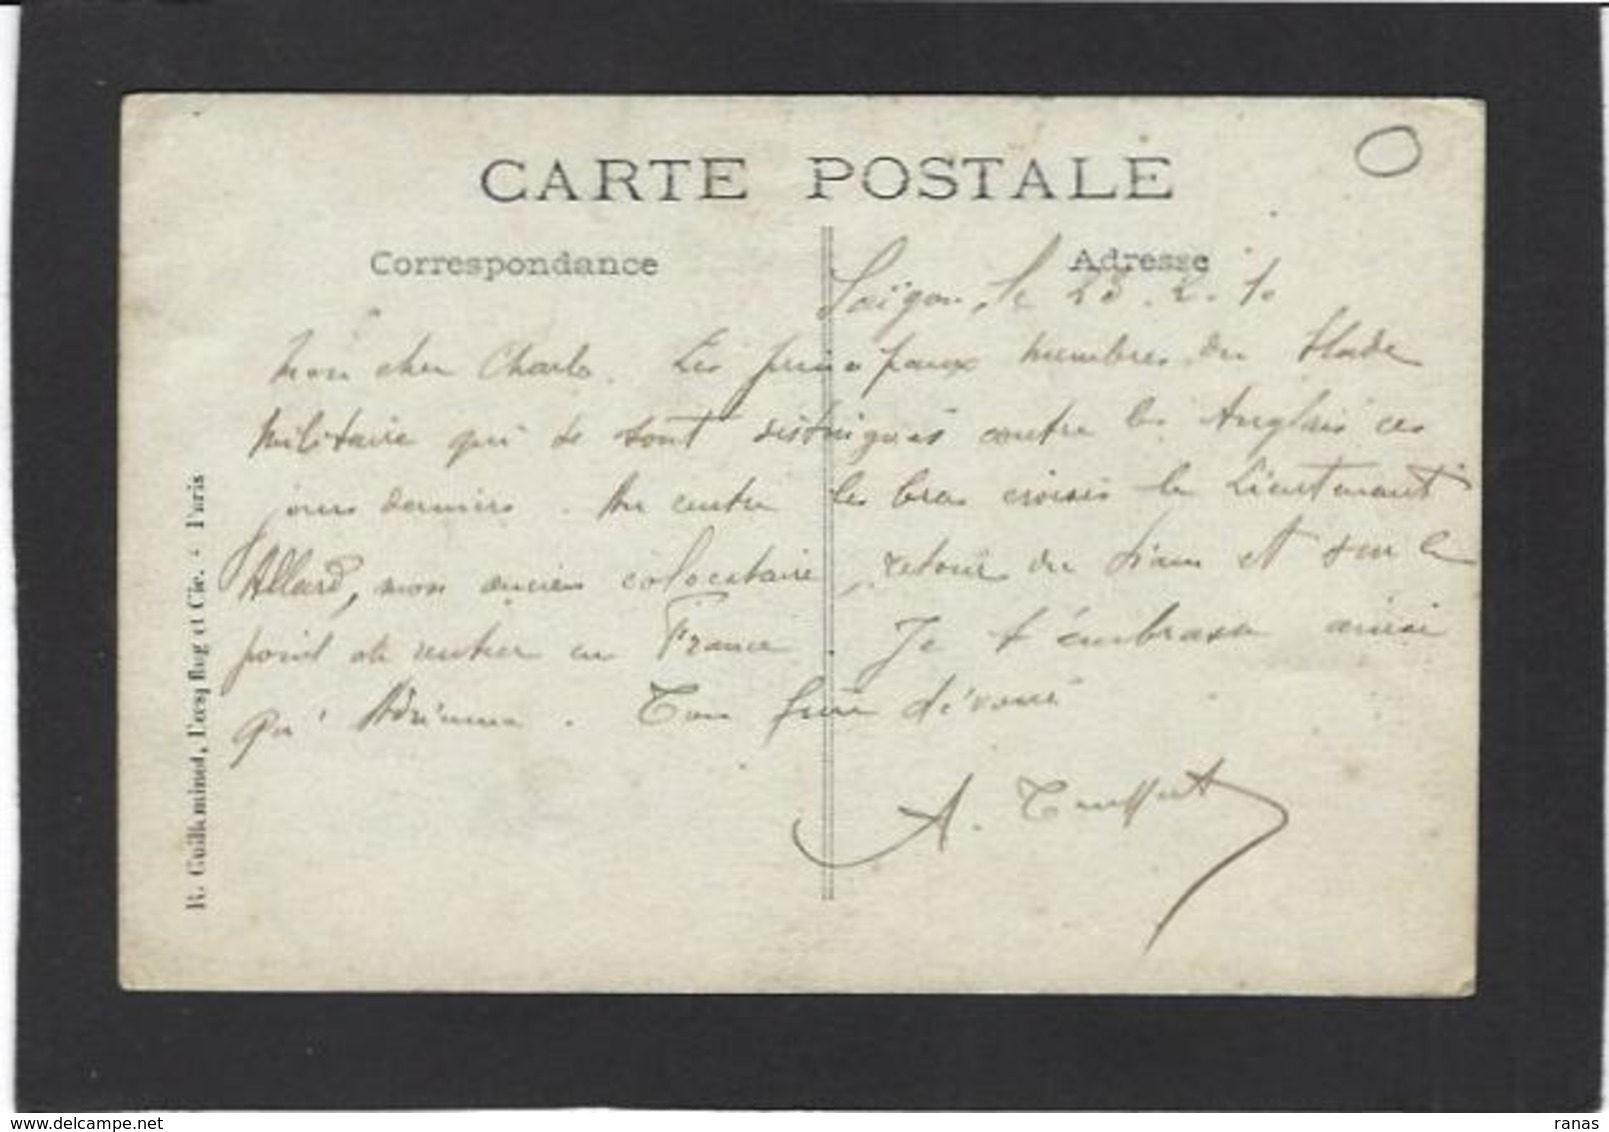 CARTE POSTALE
Correspondance
Adresse
Saïgon, le 23.2.10
Mon cher Charles. Les principaux membres du Stade
Militaire qui se sont distingués contre les Anglais ces
jours derniers. Au centre les bras croisés le Lieutenant
Allard, mon ancien colocataire, retour du Siam et sur le
point de rentrer en France. Je t'embrasse ainsi
qu'Adrienne. Ton frère dévoué
A.
R. Guilleminot, Bœspflug et Cie. - Paris
delcampe.net
ranas